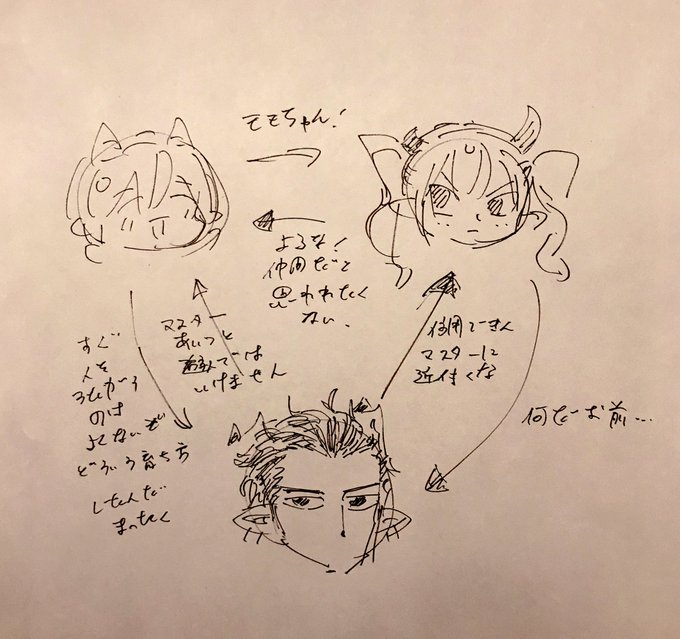 モモちゃん!
よるな!
仲間だと
思われたく
ない、
マスター
あいつと
では
いけません
信用できん
マスターに
近付くな
何だお前…
すぐ
人を
うたがう
のは
よくないぞ
どういう育ち方
したんだ
まったく